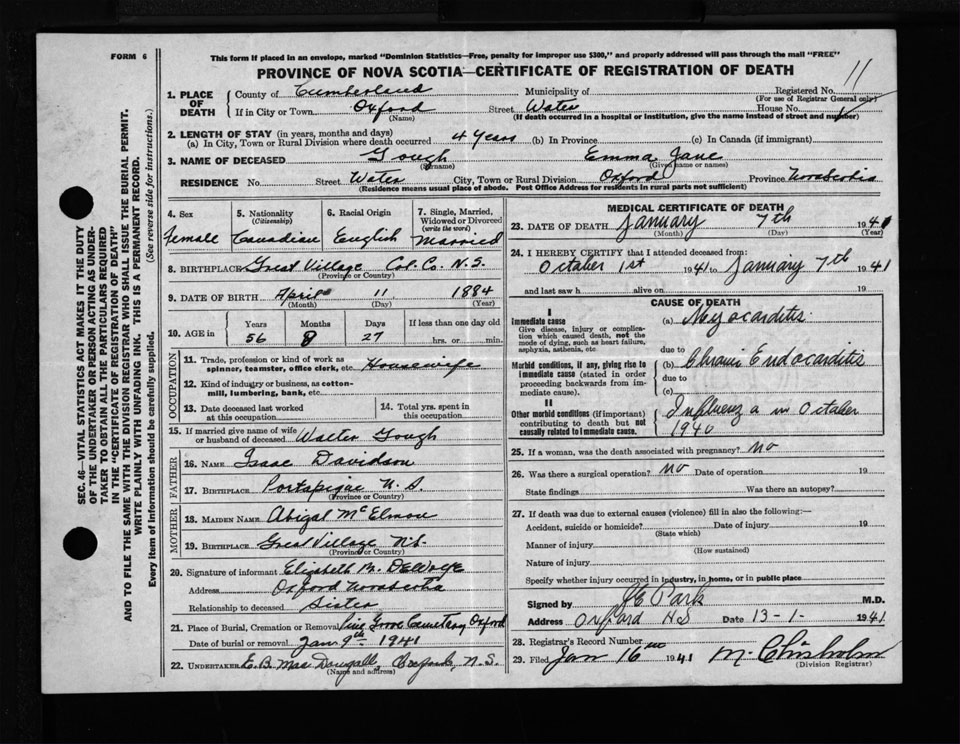 FORM 6
This form if placed in an envelope, marked "Dominion Statistics—Free, penalty for improper use $300," and properly addressed will pass through the mail "FREE"
PROVINCE OF NOVA SCOTIA—CERTIFICATE OF REGISTRATION OF DEATH
11
SEC. 46—VITAL STATISTICS ACT MAKES IT THE DUTY
OF THE UNDERTAKER OR PERSON ACTING AS UNDER-
TAKER TO OBTAIN ALL THE PARTICULARS REQUIRED
IN THE "CERTIFICATE OF REGISTRATION OF DEATH"
AND TO FILE THE SAME WITH THE DIVISION REGISTRAR WHO SHALL ISSUE THE BURIAL PERMIT.
WRITE PLAINLY WITH UNFADING INK. THIS IS A PERMANENT RECORD.
Every item of information should be carefully supplied. (See reverse side for instructions.)
1. PLACE OF DEATH
County of Cumberland Municipality of Registered No.
(For use of Registrar General only)
If in City or Town Oxford Street Water House No.
(Name) (If death occurred in a hospital or institution, give the name instead of street and number)
2. LENGTH OF STAY (in years, months and days)
(a) In City, Town or Rural Division where death occurred 4 years (b) In Province (c) In Canada (if immigrant)
3. NAME OF DECEASED Gough Emma Jane
(Surname) (Given name or names)
RESIDENCE No. Street Water City, Town or Rural Division Oxford Province Nova Scotia
(Residence means usual place of abode. Post Office Address for residents in rural parts not sufficient)
4. Sex
Female
5. Nationality
(Citizenship)
Canadian
6. Racial Origin
English
7. Single, Married,
Widowed or Divorced
(write the word)
Married
8. BIRTHPLACE Great Village Col. Co. N.S.
(Province or Country)
9. DATE OF BIRTH April 11 1884
(Month) (Day) (Year)
10. AGE in Years Months Days If less than one day old
56 8 27 hrs. or min.
OCCUPATION
11. Trade, profession or kind of work as
spinner, teamster, office clerk, etc. Housewife
12. Kind of industry or business, as cotton-
mill, lumbering, bank, etc.
13. Date deceased last worked
at this occupation
14. Total yrs. spent in
this occupation
15. If married give name of wife
or husband of deceased Walter Gough
FATHER
16. NAME Isaac Davidson
17. BIRTHPLACE Portapique N.S.
(Province or Country)
MOTHER
18. MAIDEN NAME Abigal McElmon
19. BIRTHPLACE Great Village N.S.
(Province or Country)
20. Signature of informant Elizabeth M. DeWolfe
Address Oxford Nova Scotia
Relationship to deceased Sister
21. Place of Burial, Cremation or Removal Pine Grove Cemetery Oxford
Date of burial or removal Jan 9th 1941
22. UNDERTAKER E. B. MacDougall, Oxford, N.S.
(Name and address)
MEDICAL CERTIFICATE OF DEATH
23. DATE OF DEATH January 7th 1941
(Month) (Day) (Year)
24. I HEREBY CERTIFY that I attended deceased from:
October 1st 1941 to January 7th 1941
and last saw h alive on 19
CAUSE OF DEATH
I
Immediate cause
Give disease, injury or complica-
tion which caused death, not the
mode of dying, such as heart failure,
asphyxia, asthenia, etc
(a) Myocarditis
due to
Morbid conditions, if any, giving rise to
immediate cause (stated in order
proceeding backwards from im-
mediate cause).
(b) Chronic Endocarditis
due to
(c)
II
Other morbid conditions (if important)
contributing to death but not
causally related to immediate cause.
Influenza in October
1940
25. If a woman, was the death associated with pregnancy? no
26. Was there a surgical operation? no Date of operation 19
State findings Was there an autopsy?
27. If death was due to external causes (violence) fill in also the following:—
Accident, suicide or homicide? Date of injury 19
(State which)
Manner of injury
(How sustained)
Nature of injury
Specify whether injury occurred in industry, in home, or in public place
Signed by Park M.D.
Address Oxford N.S. Date 13-1- 1941
28. Registrar's Record Number
29. Filed Jan 16th 1941 M. Chisholm
(Division Registrar)